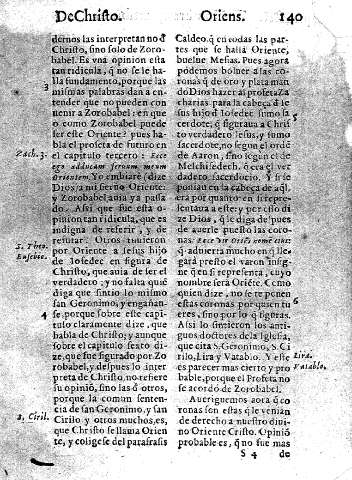 De Christo. Oriens. 140
dernos las interpretan no d̃
Christo, sino solo de Zoro-
babel. Es vna opinion esta
tan ridicula, q̃ no se le ha-
lla fundamento, porque las
3
mismas palabras dan a en-
tender que no pueden con-
uenir a Zorobabel: en que
o como Zorobabel puede
ser este Oriente? pues ha-
bla el profeta de futuro en
Zach. 3.
el capitulo tercero: Ecce
ego adducam seruum meum
Orientem. Yo embiarè (dize
Dios) a mi sieruo Oriente:
y Zorobabel auia ya passa
do. Assi que fue esta o-
pinion tan ridicula, que es
indigna de referir, y de
refutar. Otros tuuieron
S. Theo.
por Oriente a Iesus hijo
Eusebio.
de Iosedec en figura de
Christo, que auia de ser el
verdadero; y no falta quiẽ
diga que sintio lo mismo
san Geronimo, y engañan-
4
se, porque sobre este capi-
tulo claramente dize, que
habla de Christo; y aunque
sobre el capitulo sexto di-
ze, que fue figurado por Zo
robabel, y despues lo inter
preta de Christo, no refiere
su opiniõ, sino las d̃ otros,
porque la comun senten-
cia de san Geronimo, y san
S. Ciril.
Cirilo y otros muchos, es,
que Christo se llama Orien
te, y coligese del parafrasis
Caldeo. q̃ en todas las par-
tes que se halla Oriente,
buelue Mesias. Pues agora
podemos boluer a las co-
ronas q̃ de oro y plata man
dò Dios hazer al profeta Za
charias para la cabeça d̃ Ie
sus hijo d̃ Iosedec sumo sa
5
cerdote, q̃ figuraua a Chris
to verdadero Iesus, y sumo
sacerdote, no segun el ordẽ
de Aaron, sino segun el de
Melchisedech, q̃ era el ver
dadero sacerdocio. Y si se
ponian en la cabeça de aq̃l
era por quanto en si repre-
sentaua a este; y por esso di
ze Dios, q̃ le diga despues
de auerle puesto las coro-
nas. Ecce vir Oriẽs nomẽ eius:
q̃ aduierta mucho en q̃ lle-
garà presto el varon insig-
ne q̃ en si representa, cuyo
nombre serà Oriẽte. Como
quien dize, no se te ponen
6
estas coronas por quien tu
eres, sino por lo q̃ figuras.
Assi lo sintieron los anti-
guos doctores de la Iglesia,
que cita S. Geronimo, S. Ci
rilo, Lira y Vatablo. Y este
Lira.
es parecer mas cierto y pro
Vatablo.
bable, porque el Profeta no
se acordò de Zorobabel.
Aueriguemos aora q̃ co
ronas sen estas q̃ le venian
de derecho a nuestro diui-
no Oriente Cristo. Opiniõ
probable es, q̃ no fue mas
S 4 de